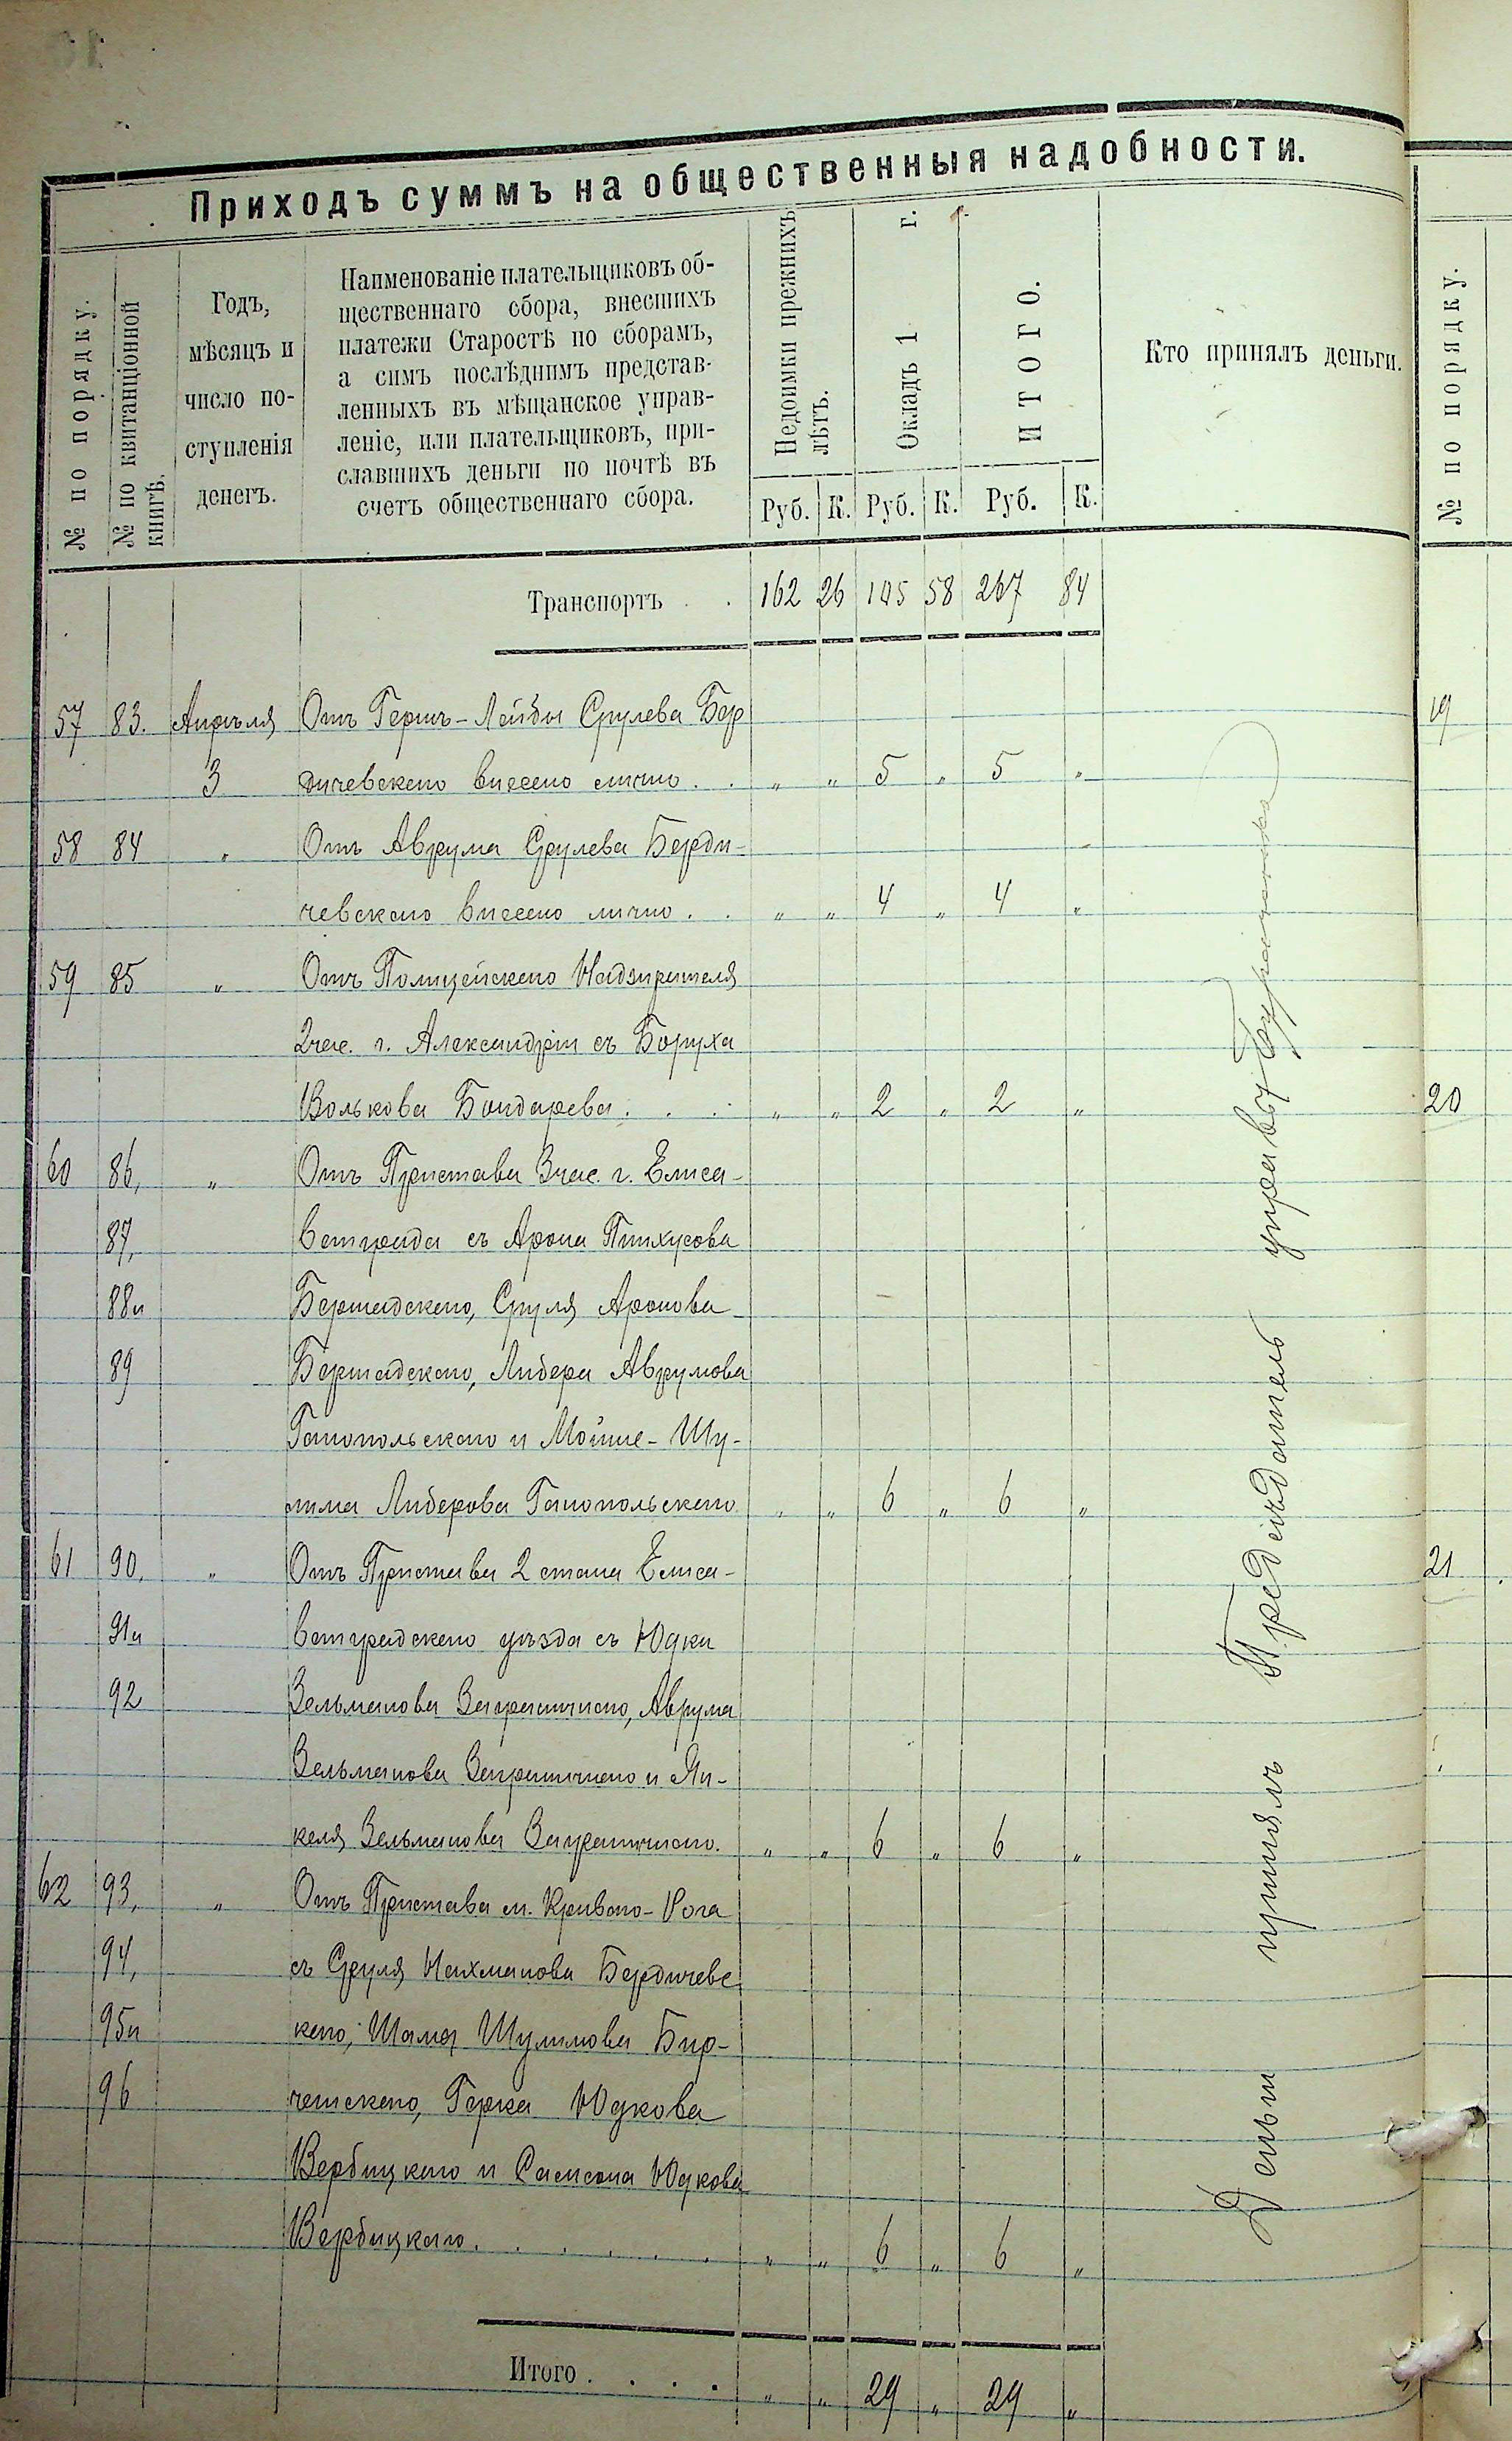 Приходъ суммъ на общественныя надобности.
№ по порядку.
№ по квитанціонной книгѣ.
Годъ,
мѣсяцъ и
число по-
ступленія
денегъ.
Наименованіе плательщиковъ об-
щественнаго сбора, внесшихъ
платежи Старостѣ по сборамъ,
а симъ послѣднимъ представ-
ленныхъ въ мѣщанское управ-
леніе, или плательщиковъ, при-
славшихъ деньги по почтѣ въ
счетъ общественнаго сбора.
Недоимки прежнихъ лѣтъ.
Окладъ 1 г.
ИТОГО.
Кто принялъ деньги.
№ по порядку.
Руб. К. Руб. К. Руб. К.
Транспортъ . . 162 26 105 58 267 84
57 83. Апрѣля Отъ Гершъ-Лейбы Срулева Бер
3 дичевскаго внесено лично . . " " 5 " 5 "
58 84 " Отъ Аврума Срулева Берди-
чевскаго внесено лично . . " " 4 " 4 "
59 85 " Отъ Полицейскаго Надзирателя
2 час. г. Александріи съ Боруха
Волькова Бондарева . . . " " 2 " 2 "
60 86, " Отъ Пристава 3 час. г. Елиса-
87, ветграда съ Арона Пинхусова
88 и Бершадскаго, Сруля Аронова
89 Бершадскаго, Либера Аврумова
Гайопольскаго и Мойше-Шу-
лима Либерова Гайопольскаго " " 6 " 6 "
61 90, " Отъ Пристава 2 стана Елиса-
91 и ветградскаго уѣзда съ Юдки
92 Зельманова Заграничнаго, Аврума
Зельманова Заграничнаго и Ян-
келя Зельманова Заграничнаго. " " 6 " 6 "
62 93, " Отъ Пристава м. Кривого-Рога
94, съ Сруля Нахманова Бердичевс
95 и каго, Шама Шулимова Бир-
96 Герка Юдкова
Вербицкаго и Самсона Юдкова
Вербицкаго . . . . . . " " 6 " 6 "
Итого . . . . " " 29 " 29 "
Деньги принялъ Предсѣдатель управы
19
20
21